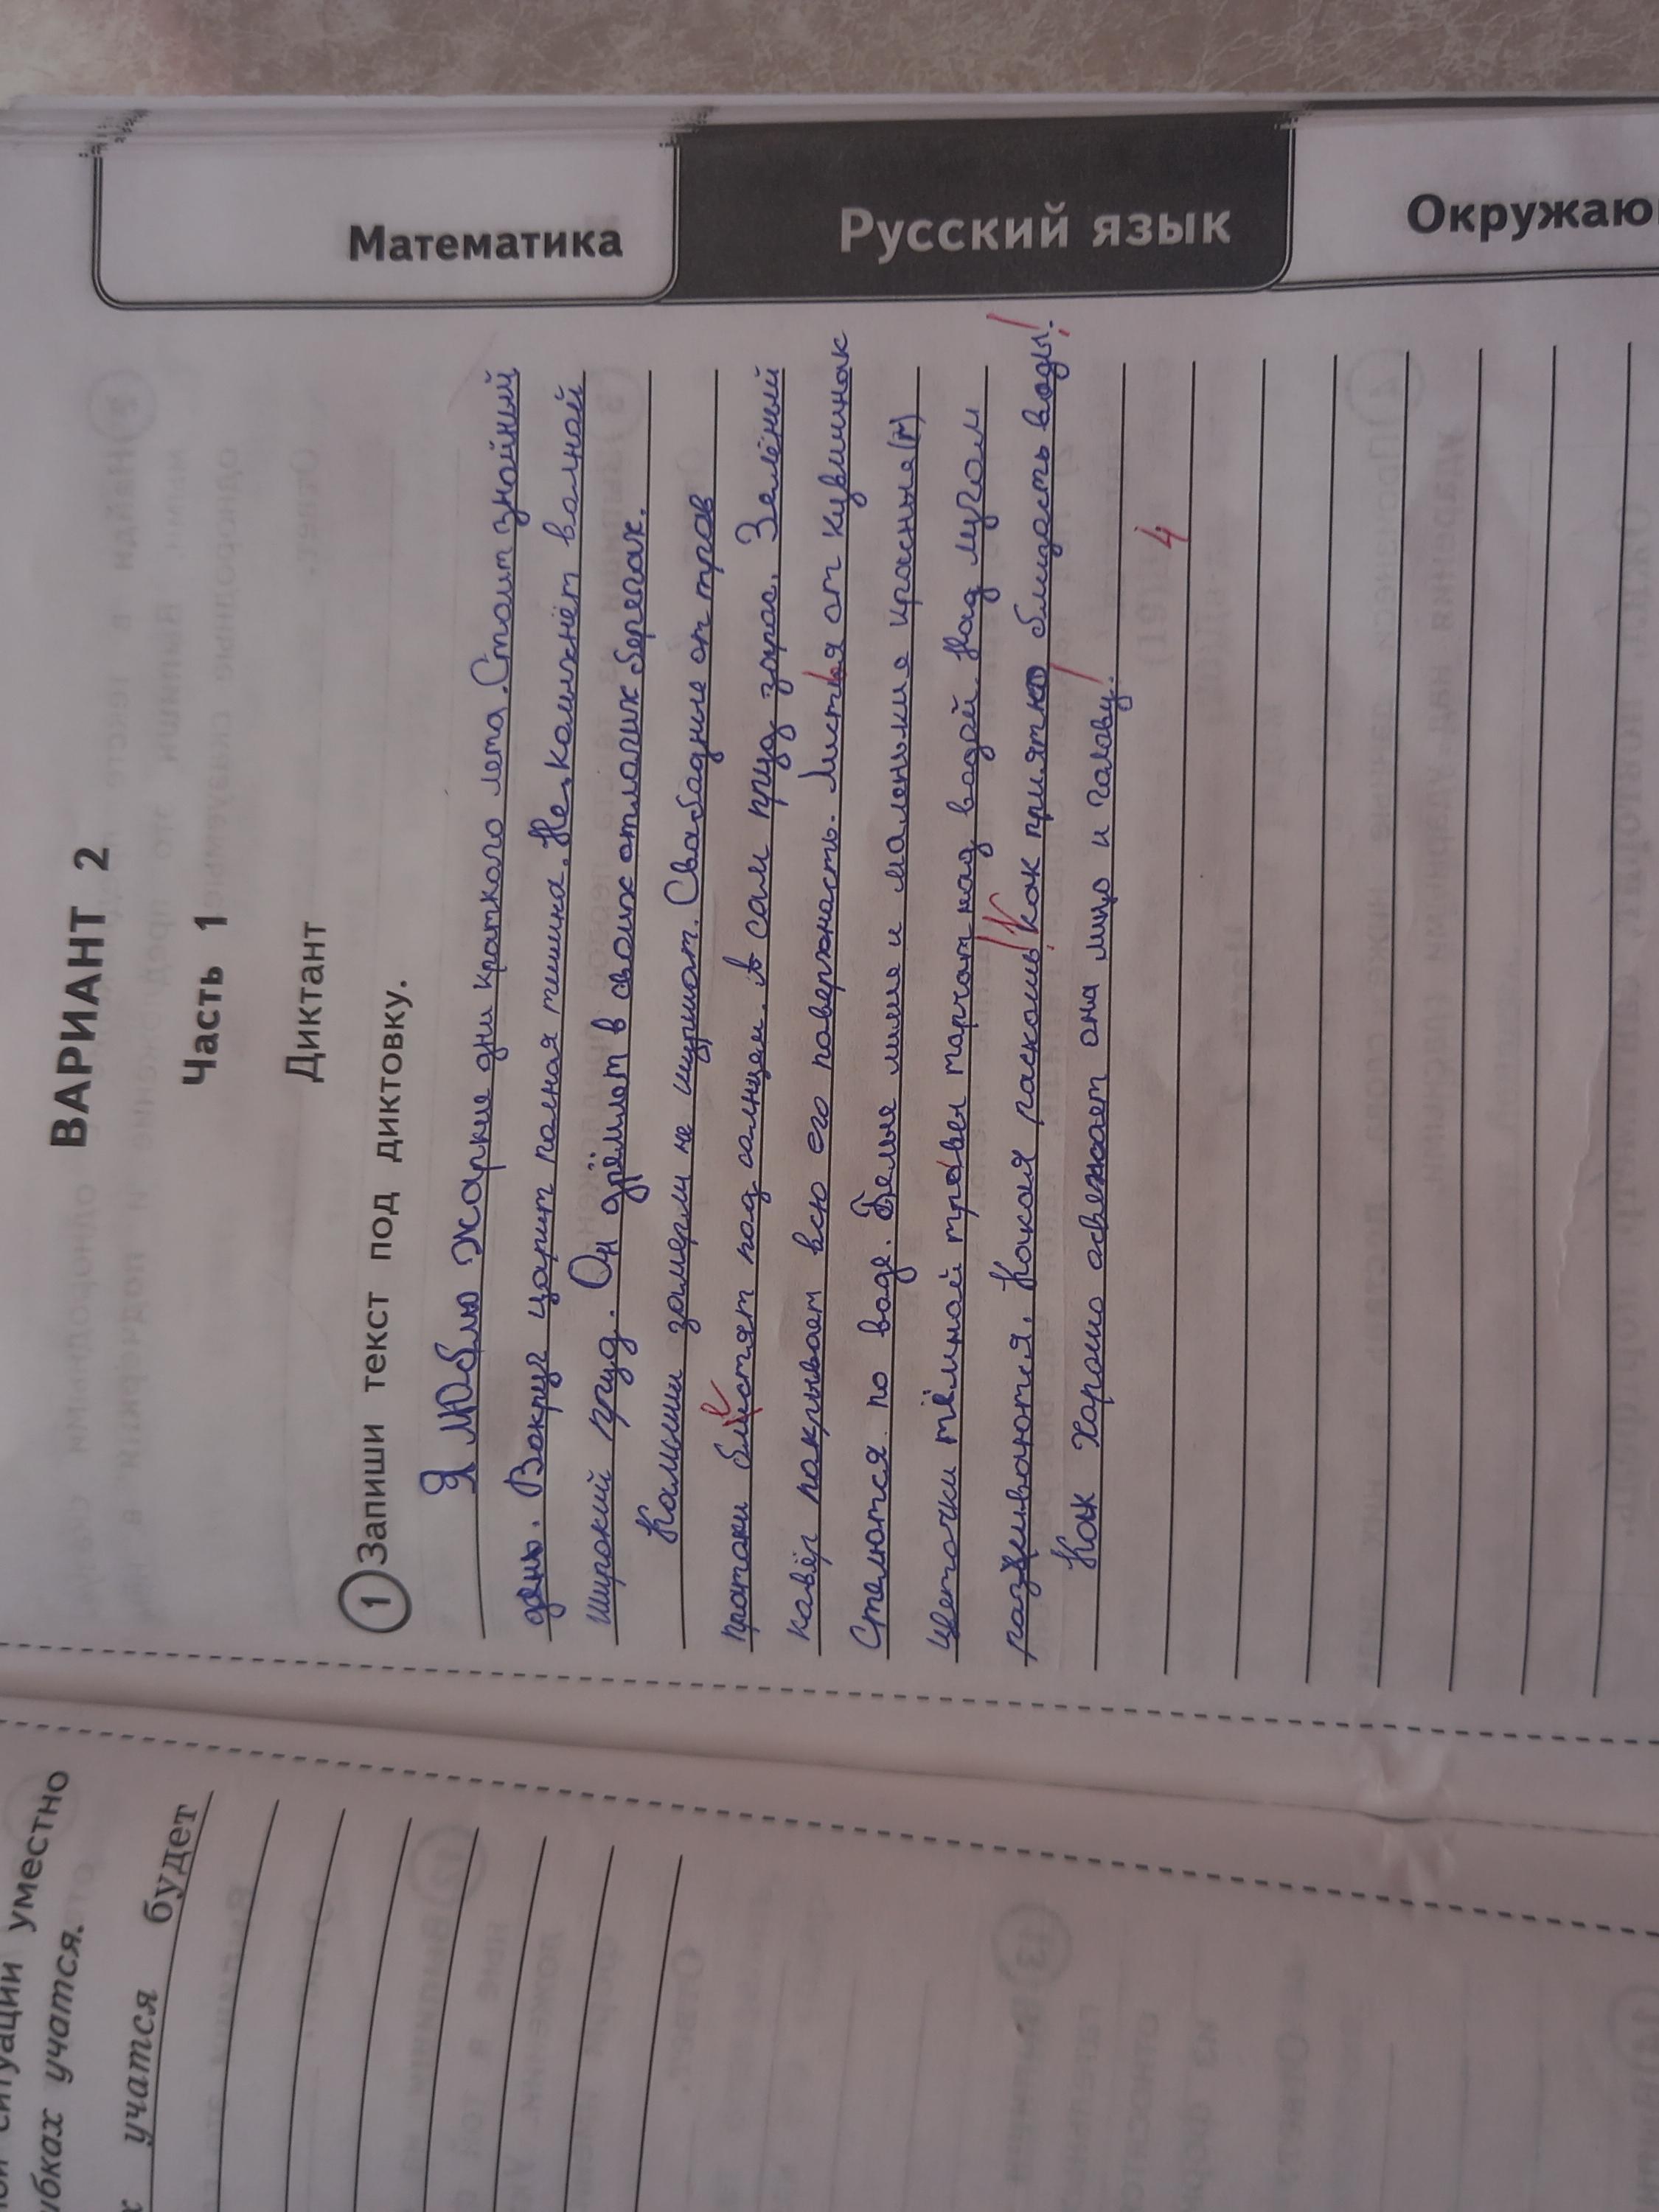 ВАРИАНТ 2
Часть 1
Диктант
1 Запиши текст под диктовку.
Я люблю жаркие дни краткого лета. Стоит знойный
день. Вокруг царит полная тишина. Не колыхнёт волной
широкий пруд. Он дремлет в своих отлогих берегах.
Камыши замерли не шуршат. Свободные от трав
протоки блестят под солнцем. А сам пруд зарос. Зелёный
ковёр покрывает всю его поверхность. Листья от кувшинок
Стелются по воде. Белые лилии и маленькие красные(м)
цветочки тёмной травы торчат над водой. Над лугом
разливаются. Какая роскошь! Как приятно близость воды!
Как хорошо освежает она лицо и голову!
4
Математика
Русский язык
Окружаю
ситуации уместно
ибках учатся.
учатся будет